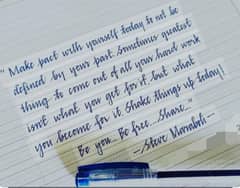 "Make pact with yourself today to not be
defined by your past. Sometimes greatest
thing to come out of all your hard work
isn't what you get for it, but what
you become for it. Shake things up today!
Be you... Be free... Share..."
—Steve Maraboli—